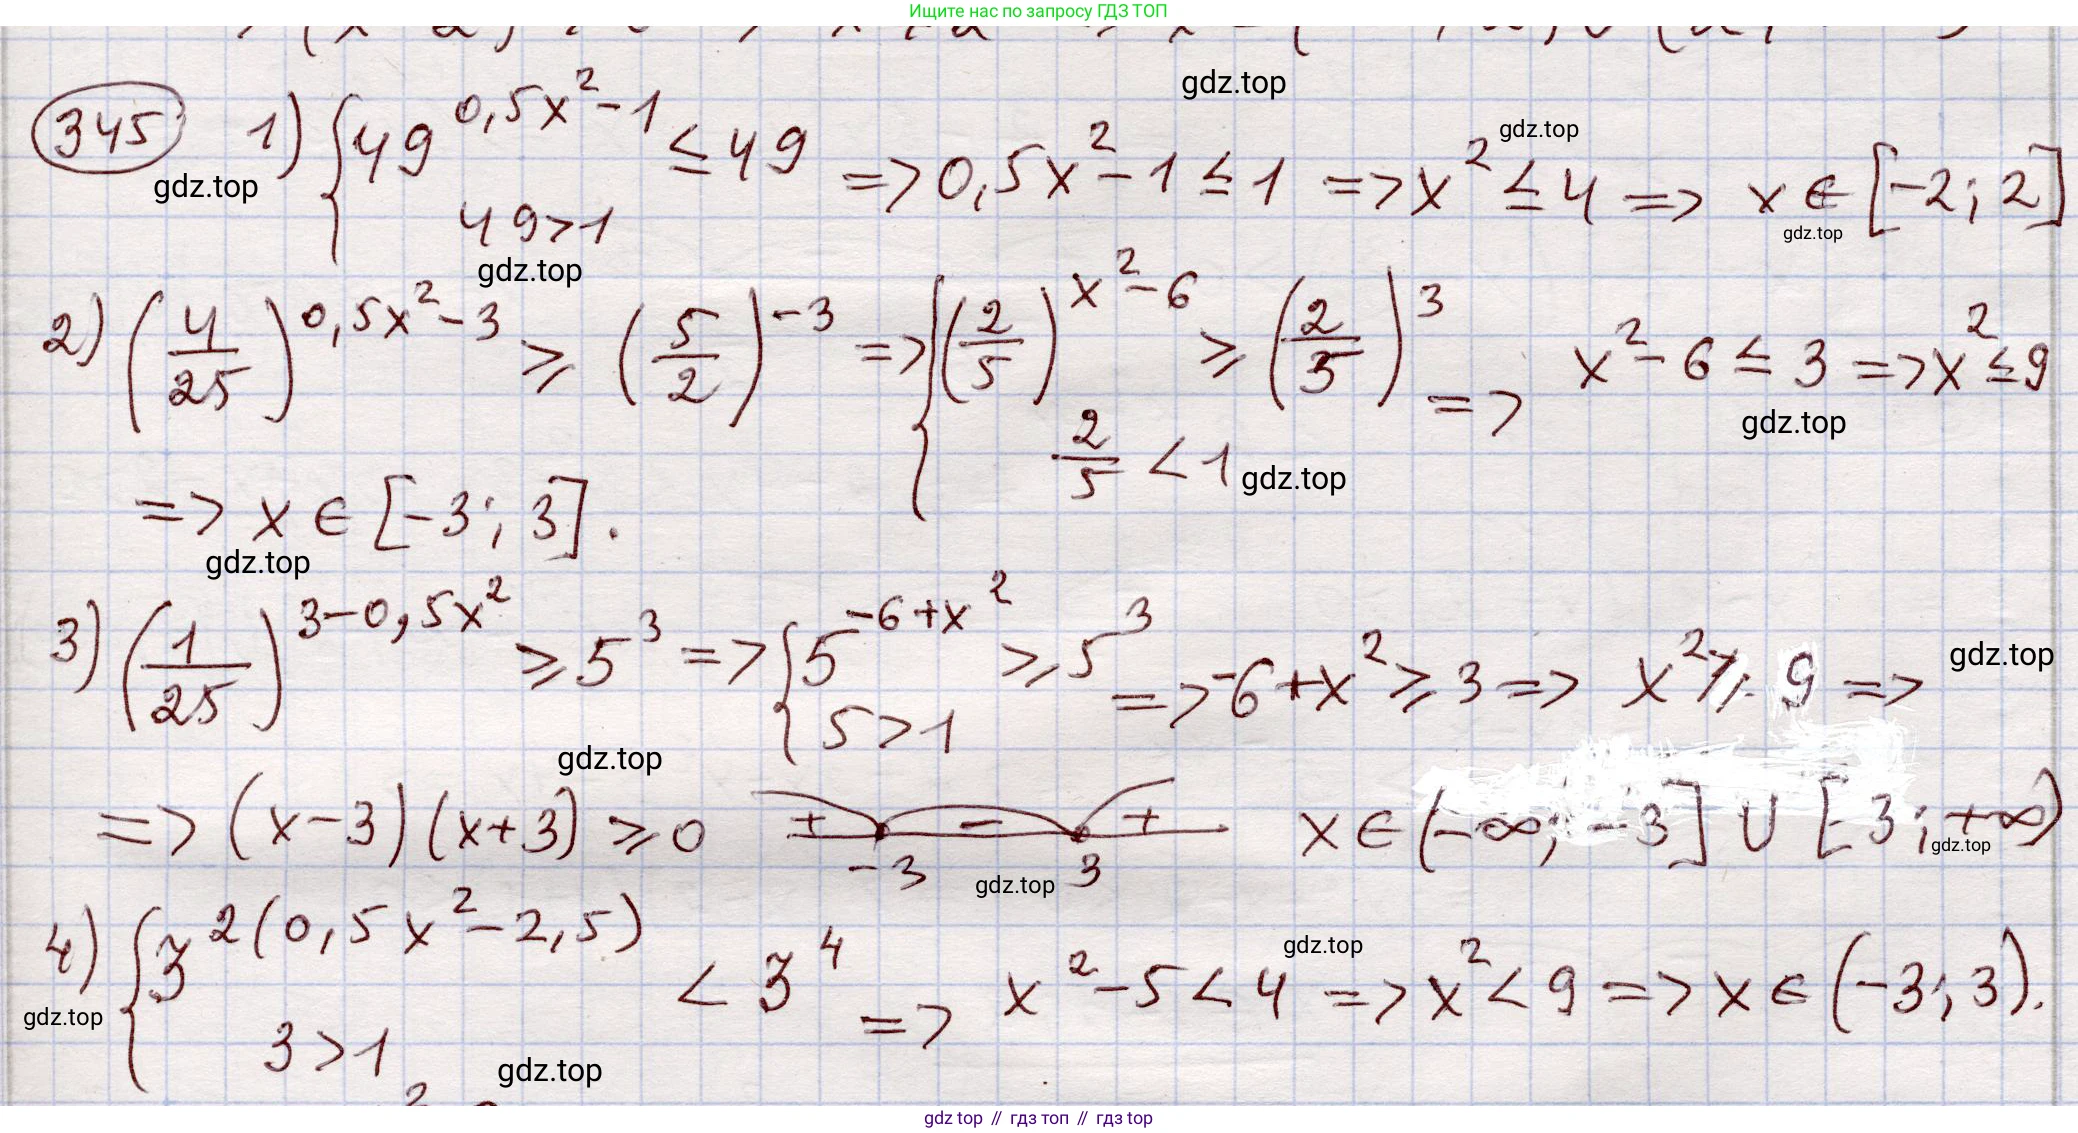 Ищите нас по запросу ГДЗ ТОП
gdz.top
345 1) { 49^(0,5x²-1) ≤ 49 => 0,5x² - 1 ≤ 1 => x² ≤ 4 => x ∈ [-2; 2]
gdz.top
gdz.top
49 > 1
gdz.top
gdz.top
2) (4/25)^(0,5x²-3) ≥ (5/2)^(-3) => { (2/5)^(x²-6) ≥ (2/5)^3 => x² - 6 ≤ 3 => x² ≤ 9
gdz.top
2/5 < 1
gdz.top
=> x ∈ [-3; 3].
gdz.top
3) (1/25)^(3-0,5x²) ≥ 5^3 => { 5^(-6+x²) ≥ 5^3 => -6+x² ≥ 3 => x² ≥ 9 =>
gdz.top
5 > 1
gdz.top
=> (x-3)(x+3) ≥ 0 + - + x ∈ (-∞; -3] ∪ [3; +∞)
-3 3
gdz.top
gdz.top
4) { 3^(2(0,5x²-2,5)) < 3^4 => x² - 5 < 4 => x² < 9 => x ∈ (-3; 3).
gdz.top
gdz.top
3 > 1
gdz.top
gdz top // гдз топ // гдз top